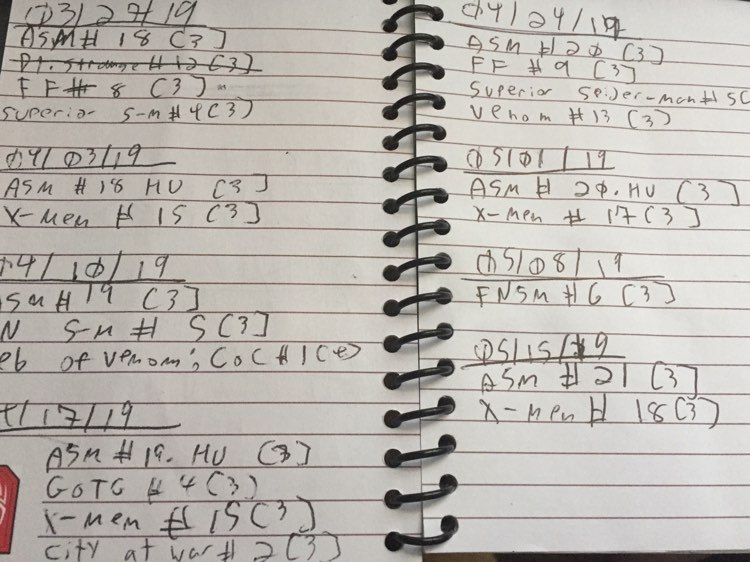 03/27/19
ASM # 18 [3]
Dr. Strange # 12 [3]
FF # 8 [3]
Superior S-M # 4 [3]
04/03/19
ASM # 18 HU [3]
X-Men # 15 [3]
04/10/19
ASM # 19 [3]
FN S-M # 5 [3]
eb of Venom: CoC # 1 (4)
4/17/19
ASM # 19. HU [3]
GOTG # 4 [3]
X-Men # 15 [3]
City at War # 2 [3]
04/24/19
ASM # 20 [3]
FF # 9 [3]
Superior Spider-Man # 5 [
Venom # 13 [3]
05/01/19
ASM # 20. HU [3]
X-Men # 17 [3]
05/08/19
FNSM # 6 [3]
05/15/19
ASM # 21 [3]
X-Men # 18 [3]